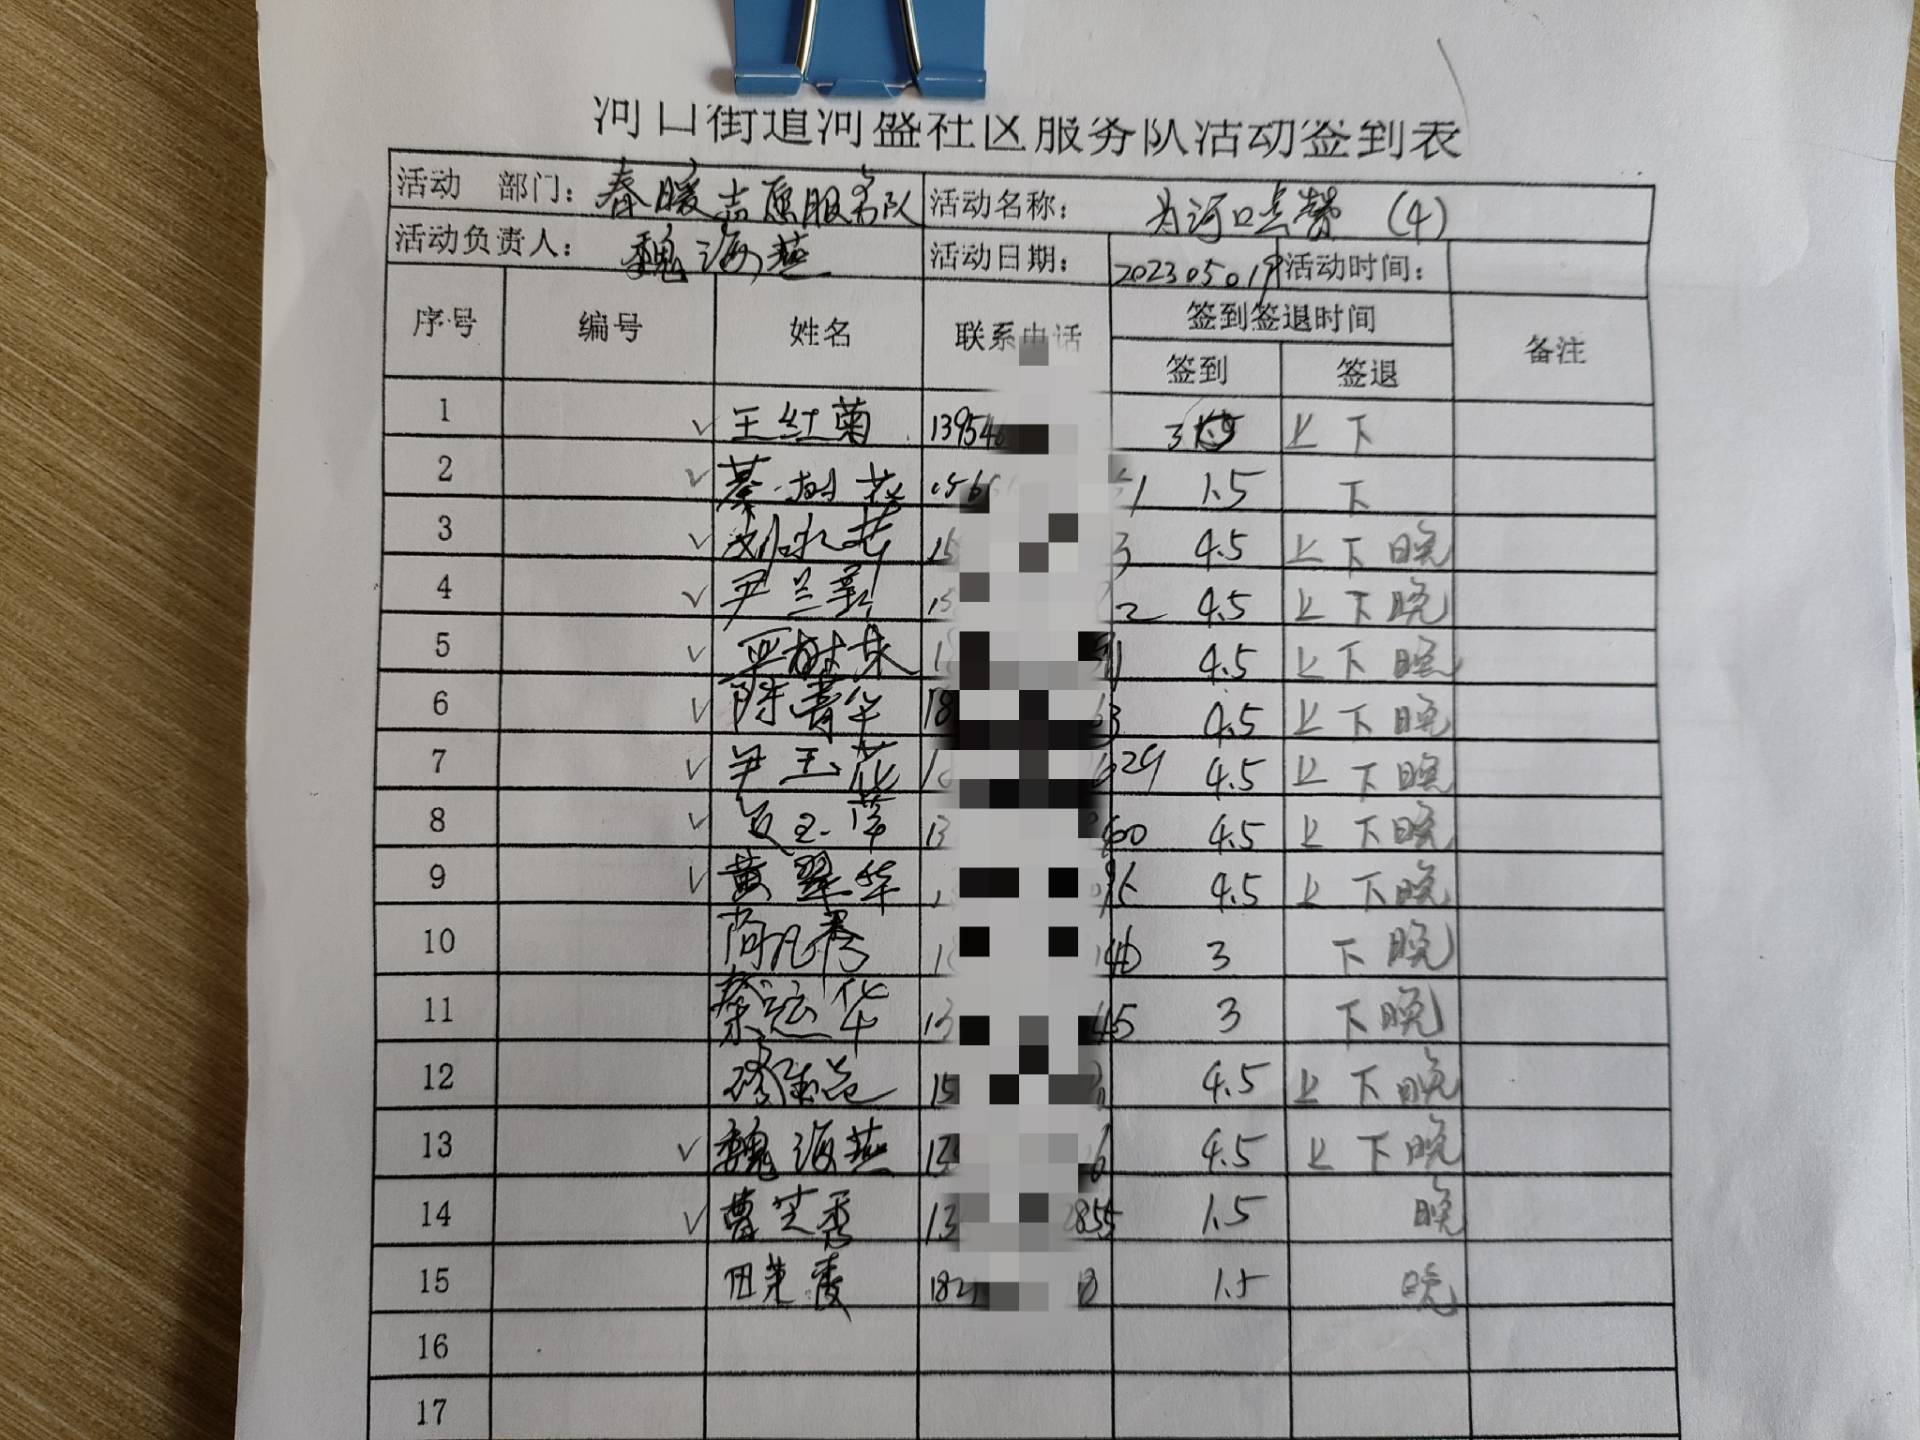 河口街道河盛社区服务队活动签到表
活动 部门： 春暖志愿服务队 活动名称： 为河口点赞（4）
活动负责人： 魏海燕 活动日期： 20230501 活动时间：
序号 编号 姓名 联系电话 签到签退时间 备注
签到 签退
1 ✓ 王红菊 13954 3 上 下
2 ✓ 1 1.5 下
3 ✓ 15 3 4.5 上 下 晚
4 ✓ 尹兰 15 2 4.5 上 下 晚
5 ✓ 1 1 4.5 上 下 晚
6 ✓ 陈青华 18 63 4.5 上 下 晚
7 ✓ 尹玉花 1 29 4.5 上 下 晚
8 ✓ 13 60 4.5 上 下 晚
9 ✓ 黄翠华 4.5 上 下 晚
10 1 46 3 下 晚
11 13 45 3 下 晚
12 15 4.5 上 下 晚
13 ✓ 魏海燕 13 6 4.5 上 下 晚
14 ✓ 曹芝秀 13 2855 1.5 晚
15 田 182 1.5 晚
16
17